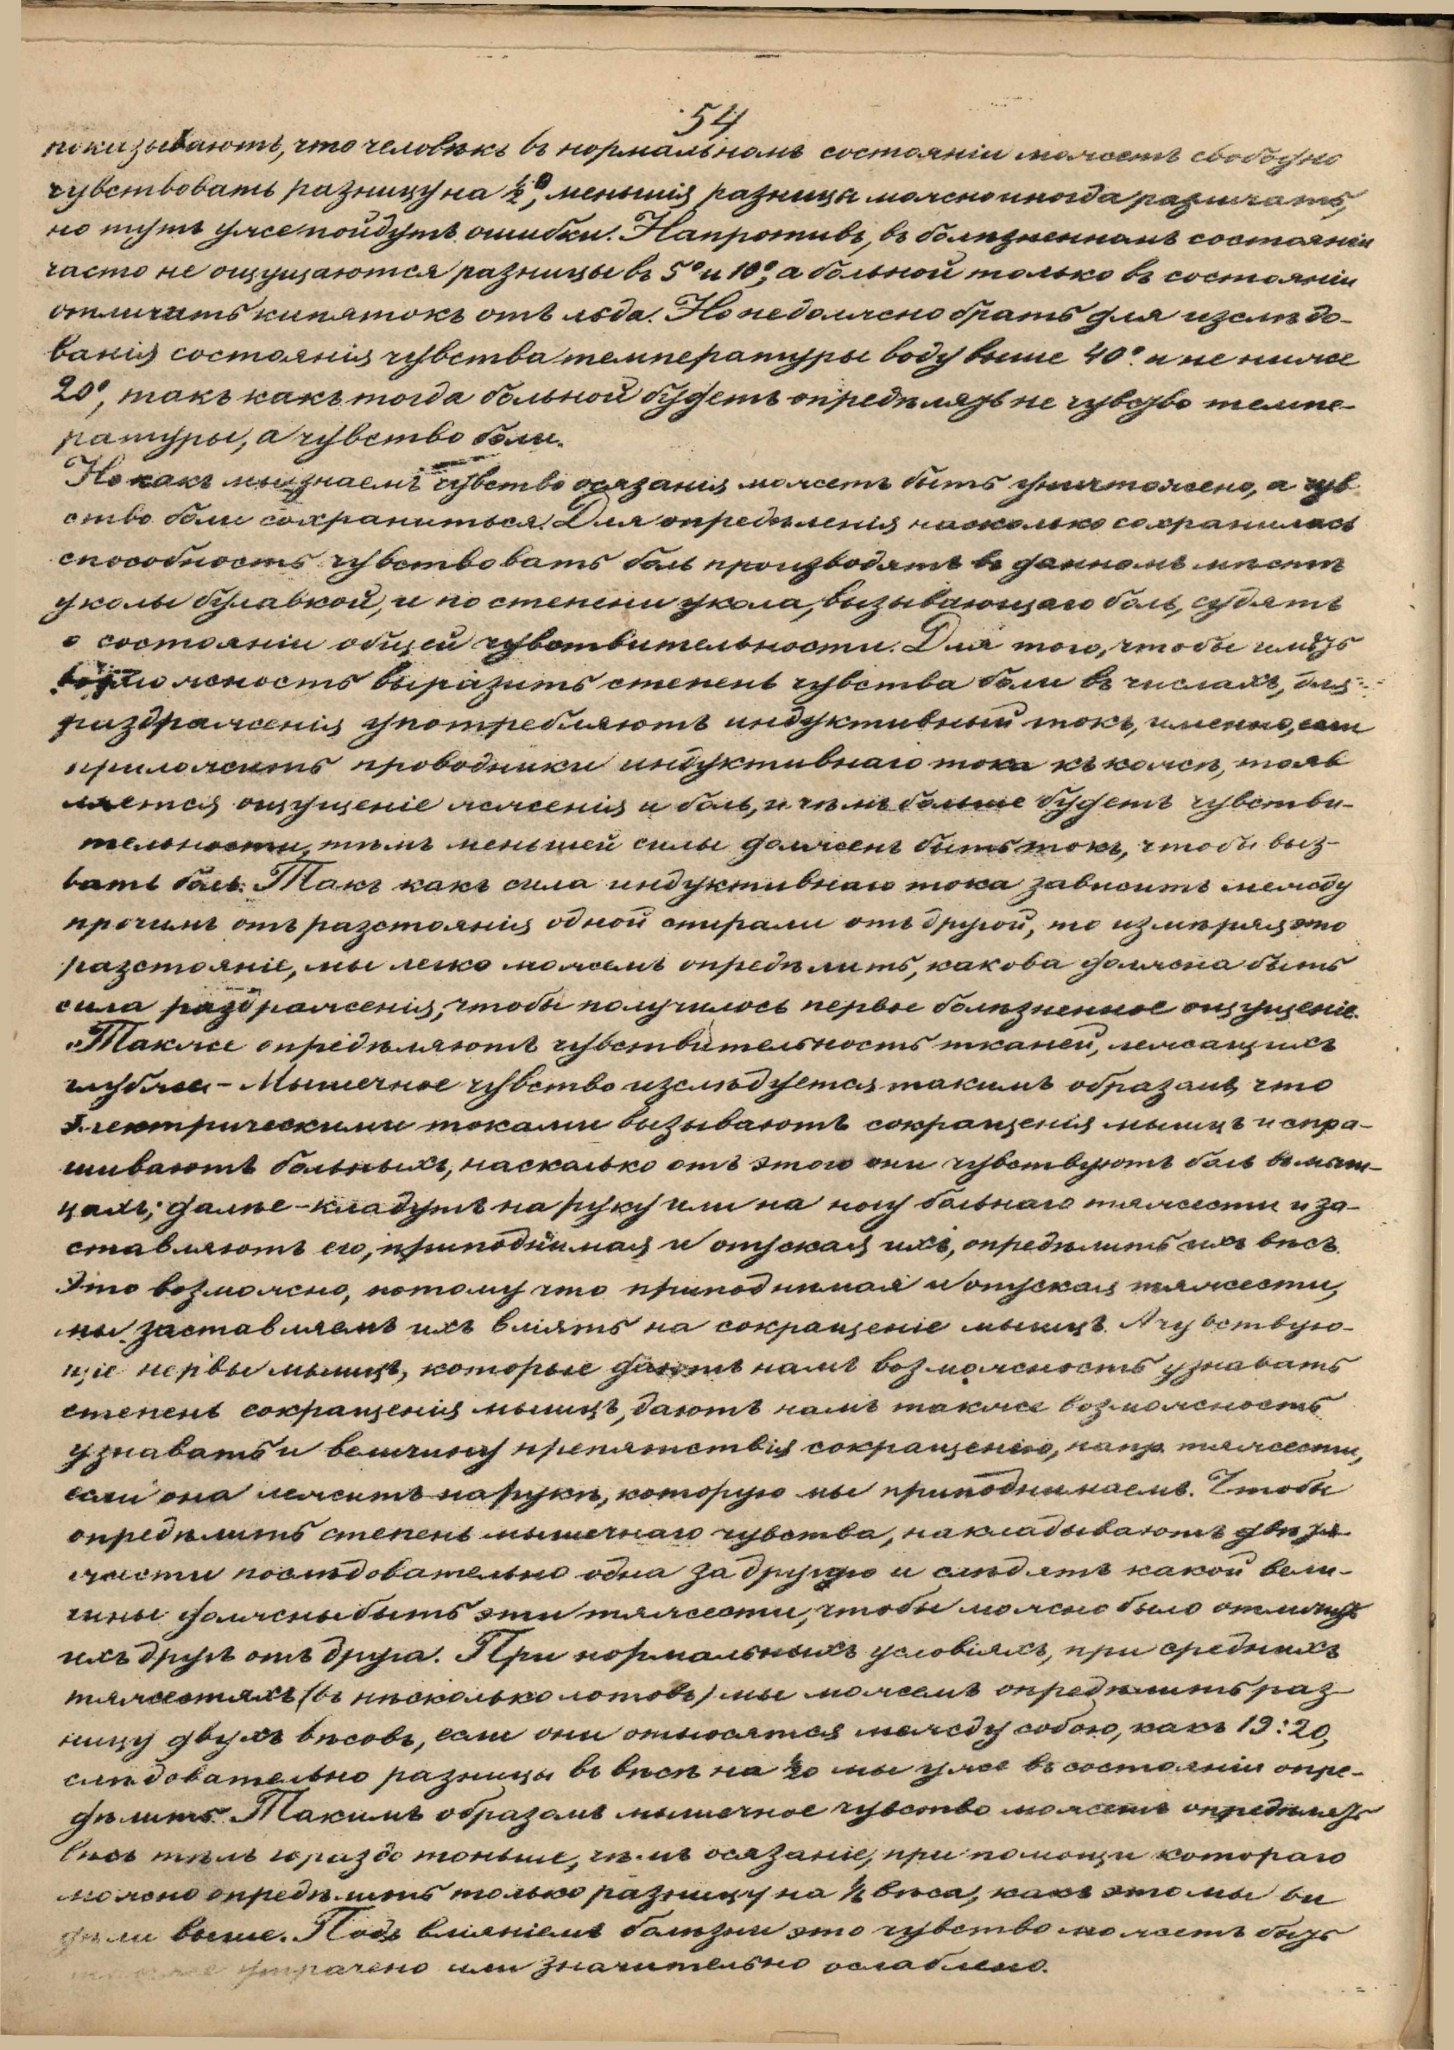 54
показываютъ, что человѣкъ въ нормальномъ состояніи можетъ свободно
чувствовать разницу на ½°, меньшія разницы можно иногда различать,
но тутъ уже пойдутъ ошибки. Напротивъ, въ болѣзненномъ состояніи
часто не ощущаются разницы въ 5° и 10°, а больной только въ состояніи
отличить кипятокъ отъ льда. Но не должно брать для изслѣдо-
ванія состоянія чувства температуры воду выше 40° и не ниже
20°, такъ какъ тогда больной будетъ опредѣлять не чувство темпе-
ратуры, а чувство боли.
Но какъ мы знаемъ чувство осязанія можетъ быть уничтожено, а чув
ство боли сохраниться. Для опредѣленія насколько сохранилась
способность чувствовать боль производятъ въ данномъ мѣстѣ
уколы булавкой, и по степени укола, вызывающаго боль, судятъ
о состояніи общей чувствительности. Для того, чтобы имѣть
возможность выразить степень чувства боли въ числахъ, для
раздраженія употребляютъ индуктивный токъ, именно, если
приложить проводники индуктивнаго тока къ кожѣ, то яв
ляется ощущеніе жженія и боль, и чѣмъ больше будетъ чувстви-
тельности, тѣмъ меньшей силы долженъ быть токъ, чтобы выз-
вать боль. Такъ какъ сила индуктивнаго тока зависитъ между
прочимъ отъ разстоянія одной спирали отъ другой, то измѣряя это
разстояніе, мы легко можемъ опредѣлить, какова должна быть
сила раздраженія, чтобы получилось первое болѣзненное ощущеніе.
Также опредѣляютъ чувствительность тканей, лежащихъ
глубже – Мышечное чувство изслѣдуется такимъ образомъ, что
электрическими токами вызываютъ сокращенія мышцъ и спра-
шиваютъ больныхъ, насколько отъ этого они чувствуютъ боль въ мыш-
цахъ; далѣе – кладутъ на руку или на ногу больнаго тяжести и за-
ставляютъ его, приподнимая и опуская ихъ, опредѣлить ихъ вѣсъ.
Это возможно, потому что приподнимая и опуская тяжести,
мы заставляемъ ихъ вліять на сокращеніе мышцъ. А чувствую-
щіе нервы мышцъ, которые даютъ намъ возможность узнавать
степень сокращенія мышцъ, даютъ намъ также возможность
узнавать и величину препятствія сокращенію, напр. тяжести,
если она лежитъ на рукѣ, которую мы приподнимаемъ. Чтобы
опредѣлить степень мышечнаго чувства, накладываютъ двѣ тя-
жести послѣдовательно одна за другою и слѣдятъ какой вели-
чины должны быть эти тяжести, чтобы можно было отличить
ихъ другъ отъ друга. При нормальныхъ условіяхъ, при среднихъ
тяжестяхъ (въ нѣсколько лотовъ) мы можемъ опредѣлить раз
ницу двухъ вѣсовъ, если они относятся между собою, какъ 19:20,
слѣдовательно разницы въ вѣсѣ на 1/20 мы уже въ состояніи опре-
дѣлить. Такимъ образомъ мышечное чувство можетъ опредѣлять
вѣсъ тѣлъ гораздо тоньше, чѣмъ осязаніе, при помощи котораго
можно опредѣлить только разницу на ⅓ вѣса, какъ это мы ви
дѣли выше. Подъ вліяніемъ болѣзни это чувство можетъ быть
утрачено или значительно ослаблено.